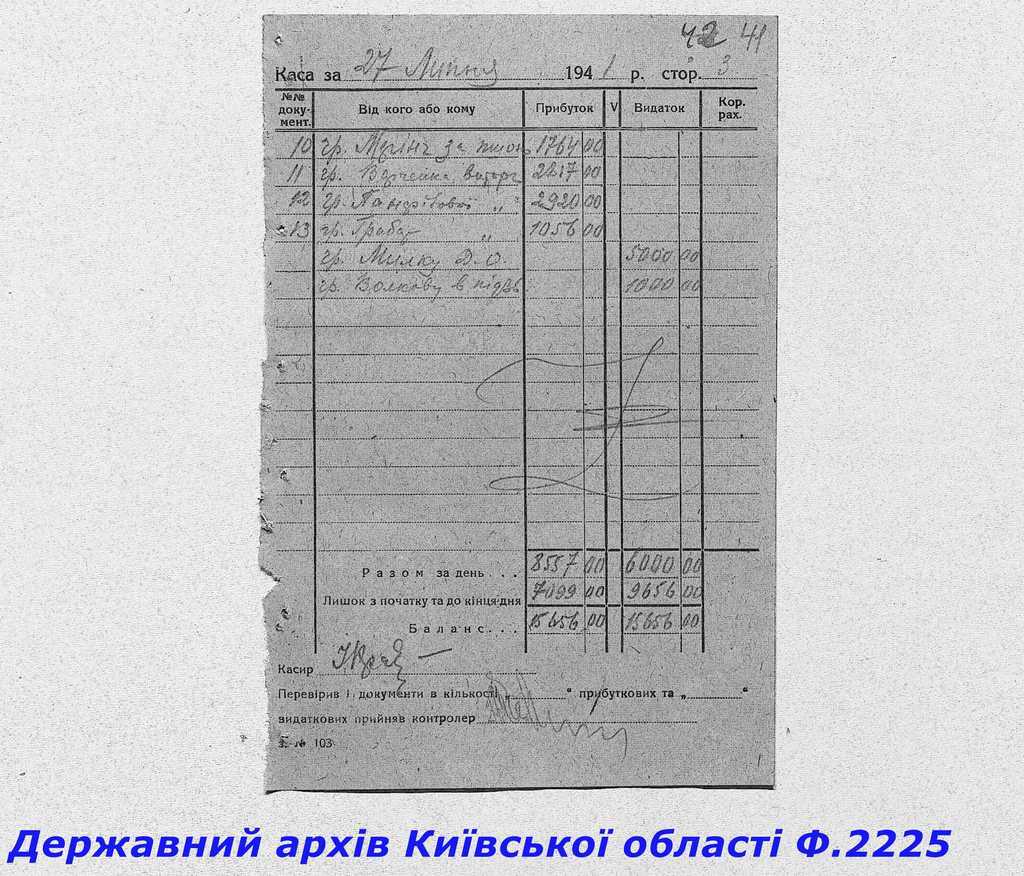 42 41
Каса за 27 Липня 1941 р. стор. 3
№№ документ. Від кого або кому Прибуток V Видаток Кор. рах.
10 гр. за 1764 00
11 гр. 2817 00
12 гр. „ 2920 00
13 гр. Грабар „ 1056 00
гр. Милку Д.О. 5000 00
гр. Волкову в підзв 1000 00
Разом за день... 8557 00 6000 00
Лишок з початку та до кінця дня 7099 00 9656 00
Баланс... 15656 00 15656 00
Касир
Перевірив і документи в кількості „ “ прибуткових та „ “
видаткових прийняв контролер
З. № 103
Державний архів Київської області Ф.2225